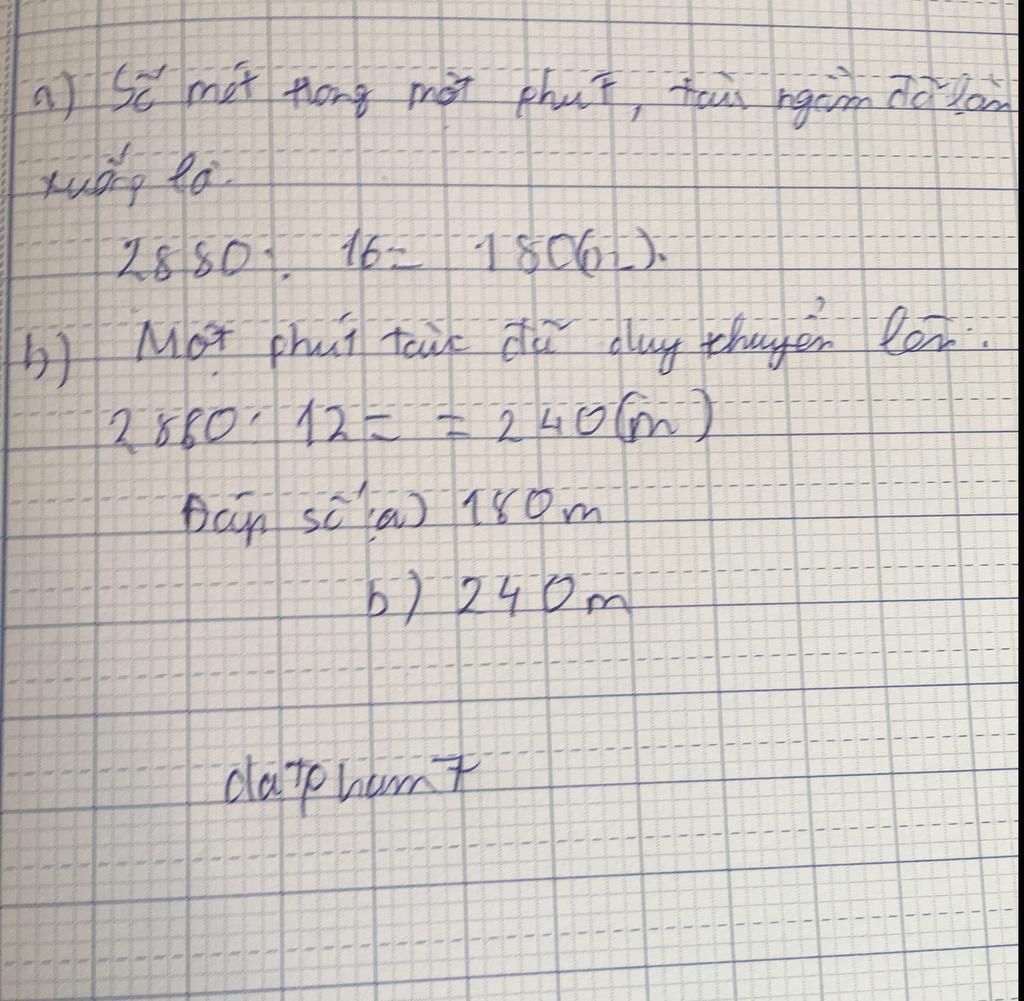 a) Số mét trong một phút, tàu ngầm đã lặn
xuống là.
2880: 16= 180(m).
b) Một phút tàu đã duy chuyển lên:
2880: 12 = = 240(m)
Đáp số: a) 180m
b) 240m
datpham7